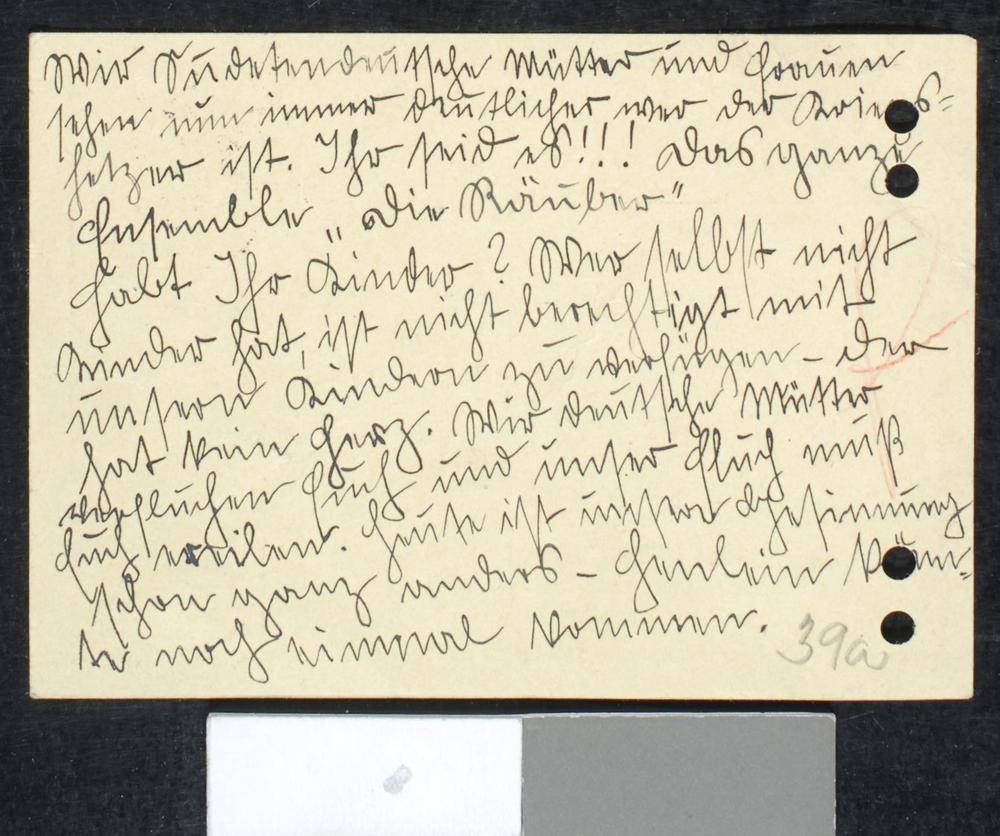 Wir Sudetendeutsche Mütter und Frauen
sehen nun immer deutlicher wer der Kriegs-
hetzer ist. Ihr seid es!!! Das ganze
Ensemble "Die Räuber"
Habt Ihr Kinder? Wer selbst nicht
Kinder hat, ist nicht berechtigt mit
unsern Kindern zu verfügen - der
hat kein Herz. Wir deutsche Mütter
verfluchen Euch und unser Fluch muß
Euch ereilen. Heute ist unsere Gesinnung
schon ganz anders - Henlein könn-
te noch einmal kommen.
39a